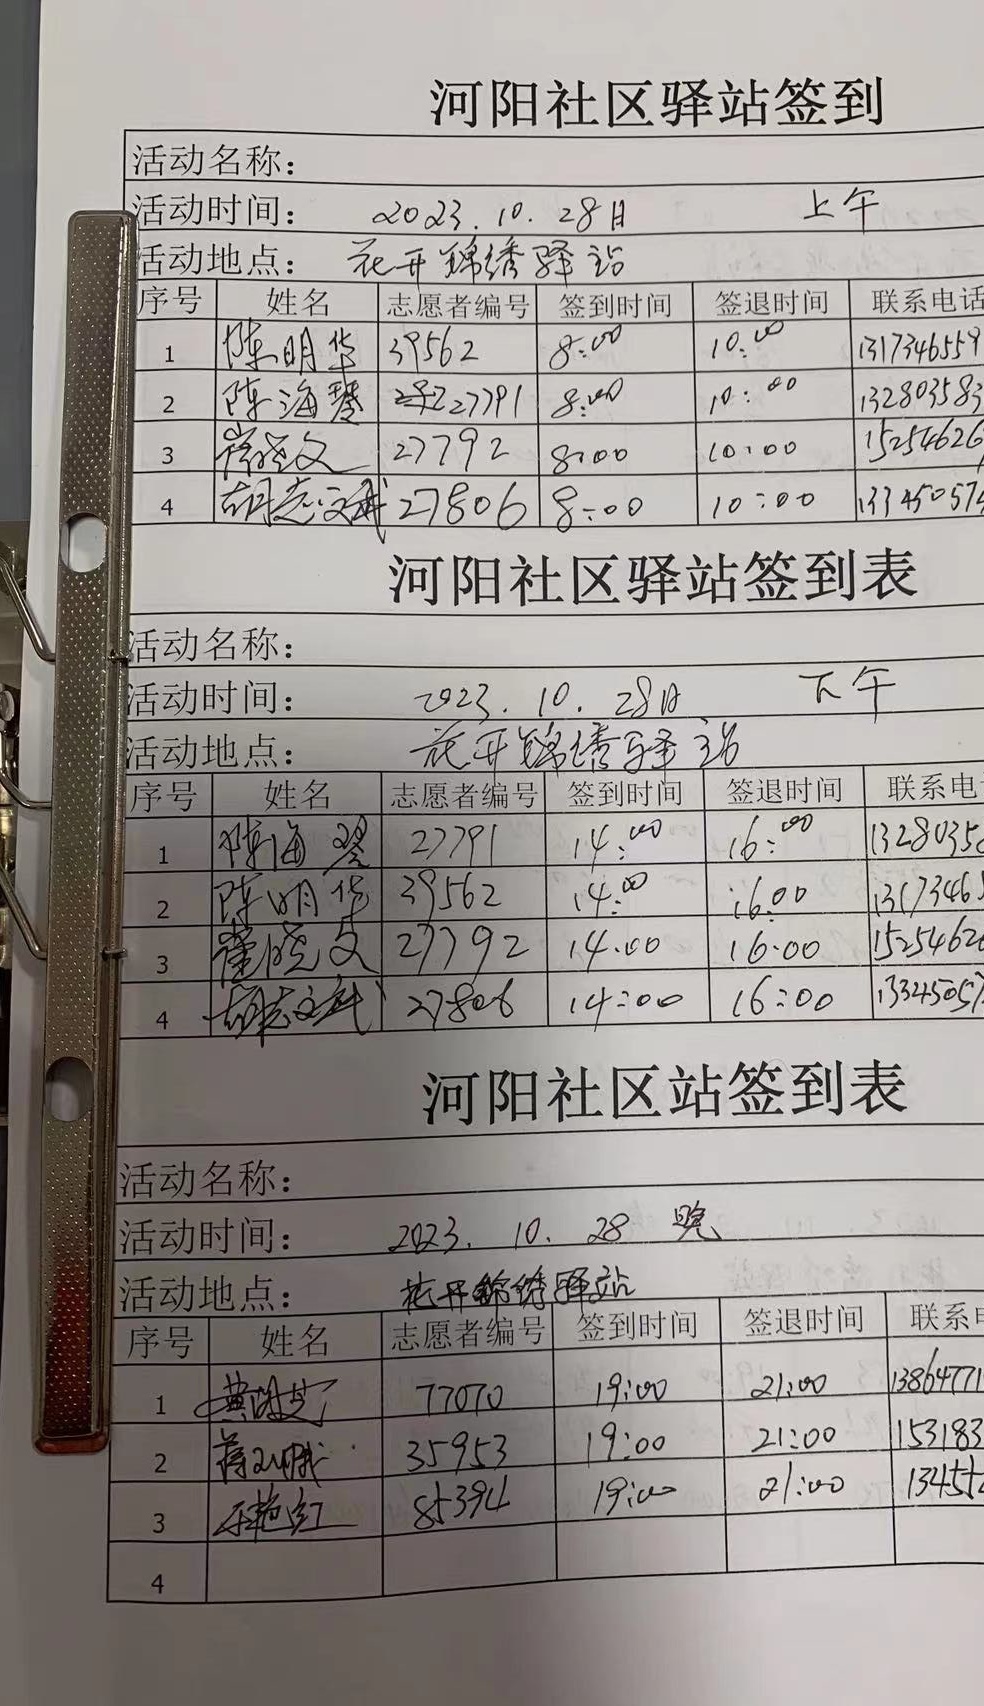 河阳社区驿站签到
活动名称：
活动时间： 2023.10.28日 上午
活动地点： 花开锦绣驿站
序号 姓名 志愿者编号 签到时间 签退时间 联系电话
1 陈明华 39562 8:00 10:00 1317346559
2 陈海琴 27791 8:00 10:00 132803583
3 崔晓文 27792 8:00 10:00 15254626
4 胡志斌 27806 8:00 10:00 133450574
河阳社区驿站签到表
活动名称：
活动时间： 2023.10.28日 下午
活动地点： 花开锦绣驿站
序号 姓名 志愿者编号 签到时间 签退时间 联系电
1 陈海琴 27791 14:00 16:00 1328035
2 陈明华 39562 14:00 16:00 1317346
3 崔晓文 27792 14:00 16:00 1525462
4 胡志斌 27806 14:00 16:00 13345057
河阳社区站签到表
活动名称：
活动时间： 2023.10.28 晚
活动地点： 花开锦绣驿站
序号 姓名 志愿者编号 签到时间 签退时间 联系电
1 77070 19:00 21:00 13864771
2 35953 19:00 21:00 153183
3 85394 19:00 21:00 13455
4